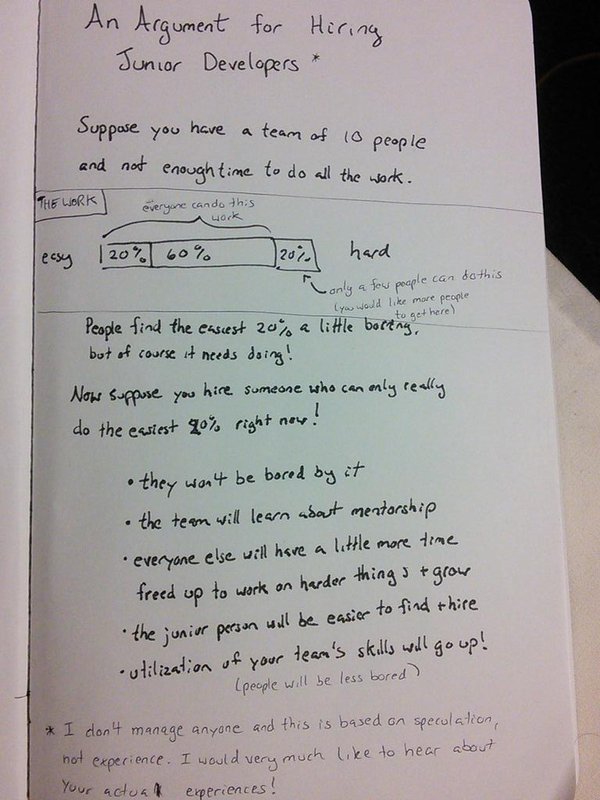 An Argument for Hiring
Junior Developers *
Suppose you have a team of 10 people
and not enough time to do all the work.
THE WORK
everyone can do this
work
easy 20% 60% 20% hard
only a few people can do this
(you would like more people
to get here)
People find the easiest 20% a little boring,
but of course it needs doing!
Now suppose you hire someone who can only really
do the easiest 20% right now!
• they won't be bored by it
• the team will learn about mentorship
• everyone else will have a little more time
freed up to work on harder things + grow
• the junior person will be easier to find + hire
• utilization of your team's skills will go up!
(people will be less bored)
* I don't manage anyone and this is based on speculation,
not experience. I would very much like to hear about
your actual experiences!